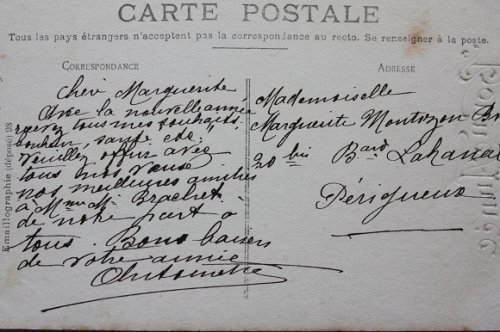 CARTE POSTALE
Tous les pays étrangers n'acceptent pas la correspondance au recto. Se renseigner à la poste.
CORRESPONDANCE
Cher Marguerite
Avec la nouvelle année
recevez tous mes souhaits
bonheur, santé etc.
Veuillez offrir avec
tous nos vœux
nos meilleures amitiés
à Mme M. Brachet
de notre part à
tous. Bons baisers
de votre amie
Antoinette
ADRESSE
Mademoiselle
Marguerite
20 bis Bard Lakanal
Périgueux
Emaillographie (déposé) 98